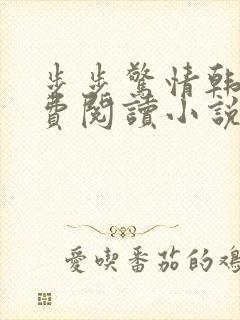 步步驚情韓
費閱讀小說
愛喫番茄的鴻